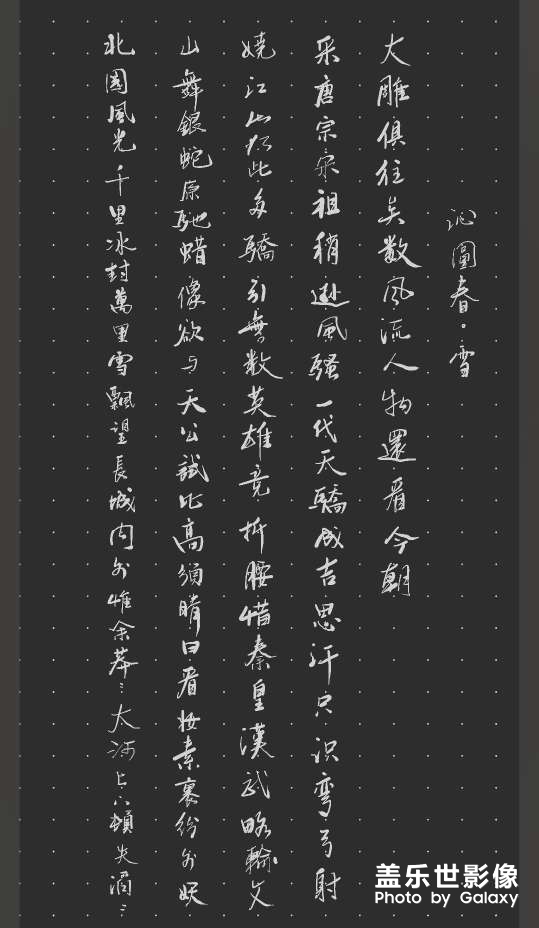 沁園春·雪
北國風光千里冰封萬里雪飄望長城内外惟余莽〻大河上下頓失滔〻
山舞銀蛇原馳蜡像欲与天公試比高須晴日看妆素裹紛外妖
嬈江山如此多驕引無数英雄竞折腰惜秦皇漢武略輸文
采唐宗宋祖稍遜風騷一代天驕成吉思汗只识彎弓射
大雕俱往矣数风流人物還看今朝
盖乐世影像
Photo by Galaxy